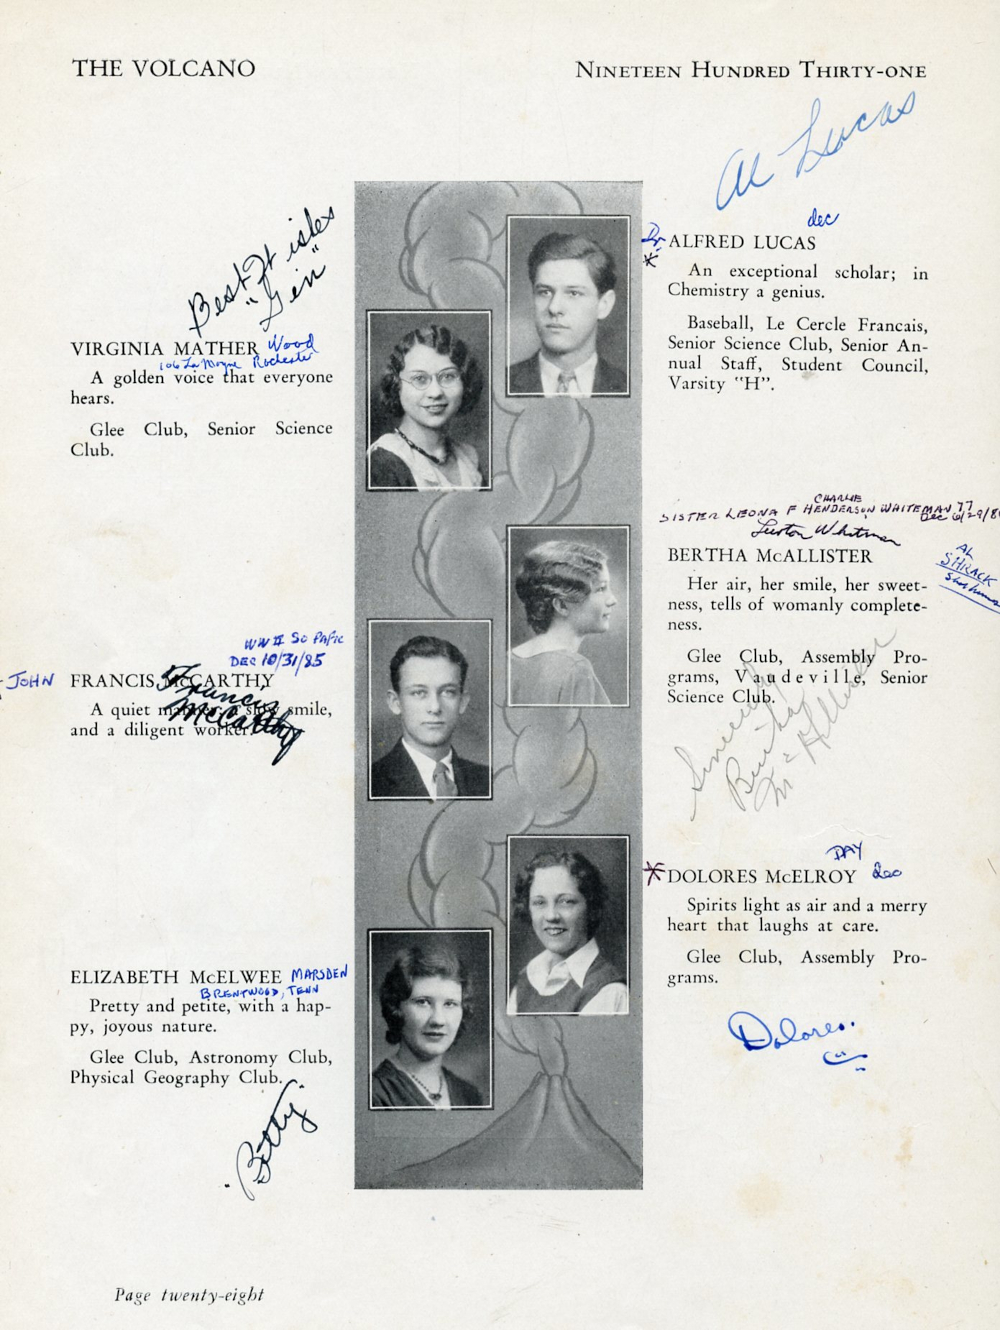 THE VOLCANO
NINETEEN HUNDRED THIRTY-ONE
Al Lucas
dec
Dr
*
ALFRED LUCAS
An exceptional scholar; in
Chemistry a genius.
Baseball, Le Cercle Francais,
Senior Science Club, Senior An-
nual Staff, Student Council,
Varsity "H".
Best
"Gin"
VIRGINIA MATHER Wood
106 La Moyne Rochester
A golden voice that everyone
hears.
Glee Club, Senior Science
Club.
CHARLIE
SISTER LEONA F HENDERSON WHITEMAN 77
Dec 6/29/8
BERTHA McALLISTER
AL
SHRACK
Her air, her smile, her sweet-
ness, tells of womanly complete-
ness.
Glee Club, Assembly Pro-
grams, Vaudeville, Senior
Science Club.
Sincerely
Bertha
McAllister
WW II SO PAFIC
DEC 10/31/85
- JOHN
FRANCIS McCARTHY
Francis
McCarthy
A quiet manner, a slow smile,
and a diligent worker.
DAY
* DOLORES McELROY dec
Spirits light as air and a merry
heart that laughs at care.
Glee Club, Assembly Pro-
grams.
Dolores.
ELIZABETH McELWEE MARSDEN
BRENTWOOD, TENN
Pretty and petite, with a hap-
py, joyous nature.
Glee Club, Astronomy Club,
Physical Geography Club.
Betty
Page twenty-eight